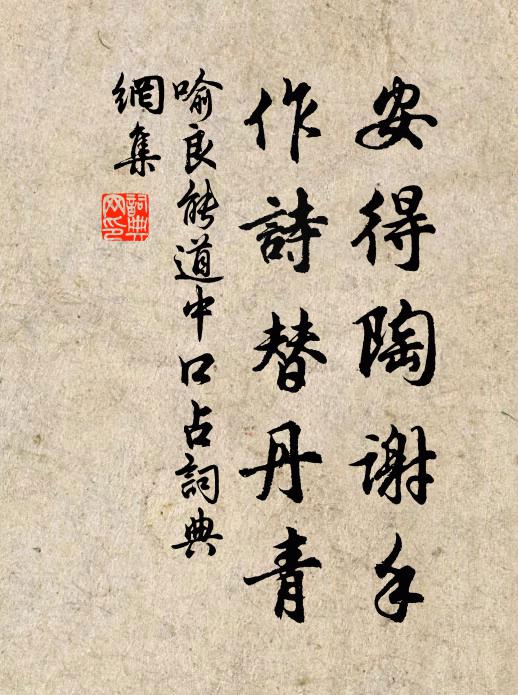 安得陶謝手
作詩替丹青
喻良能道中口占詞典
網集
詞典
网印